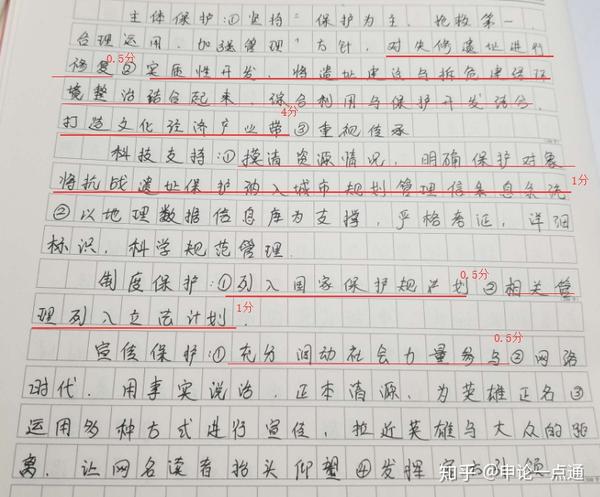 主体保护:①坚持"保护为主、抢救第一、
合理运用、加强管理"方针,对失修遗址进行
修复②实质性开发,将遗址建设与拆危建绿环
0.5分
境整治结合起来,综合利用与保护开发结合,
打造文化经济产业带③重视传承
4分
科技支持:①摸清资源情况,明确保护对象
将抗战遗址保护纳入城市规划管理信息系统
1分
②以地理数据信息库为支撑,严格考证,详细
标识,科学规范管理.
制度保护:①列入国家保护规计划②相关管
0.5分
理列入立法计划.
1分
0.5分
宣传保护:①充分调动社会力量参与②网络
时代,用事实说话,正本清源,为英雄正名③
运用多种方式进行宣传,拉近英雄与大众的距
离,让网名读者抬头仰望④发挥
知乎 @申论一点通